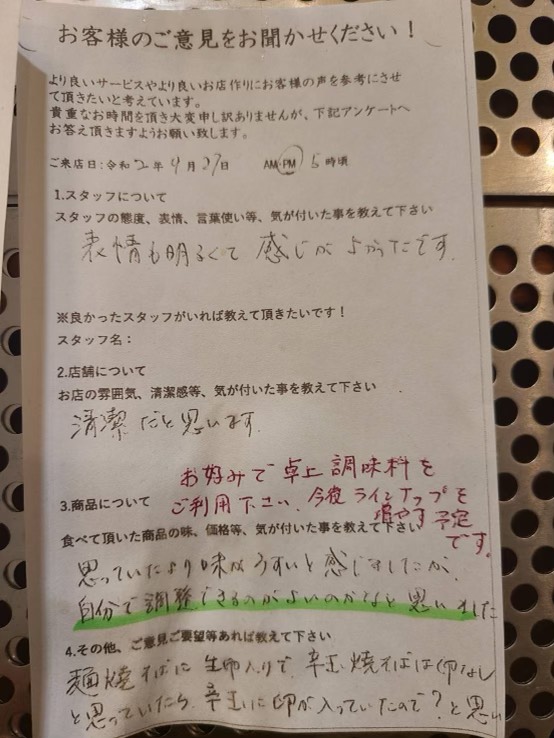 お客様のご意見をお聞かせください！
より良いサービスやより良いお店作りにお客様の声を参考にさせ
て頂きたいと考えています。
貴重なお時間を頂き大変申し訳ありませんが、下記アンケートへ
お答え頂きますようお願い致します。
ご来店日：令和2年4月27日 AM・PM 5時頃
1.スタッフについて
スタッフの態度、表情、言葉使い等、気が付いた事を教えて下さい
表情も明るくて感じがよかったです.
※良かったスタッフがいれば教えて頂きたいです！
スタッフ名：
2.店舗について
お店の雰囲気、清潔感等、気が付いた事を教えて下さい
清潔だと思います.
お好みで卓上調味料を
3.商品について
ご利用下さい、今後ラインナップを
増やす予定
です。
食べて頂いた商品の味、価格等、気が付いた事を教えて下さい
思っていたより味はうすいと感じましたが、
自分で調整できるのがよいのかなと思いました
4.その他、ご意見ご要望等あれば教えて下さい
麺焼そばに生卵入りで、辛玉焼そばは卵なし
と思っていたら、辛玉に卵が入っていたので？と思い